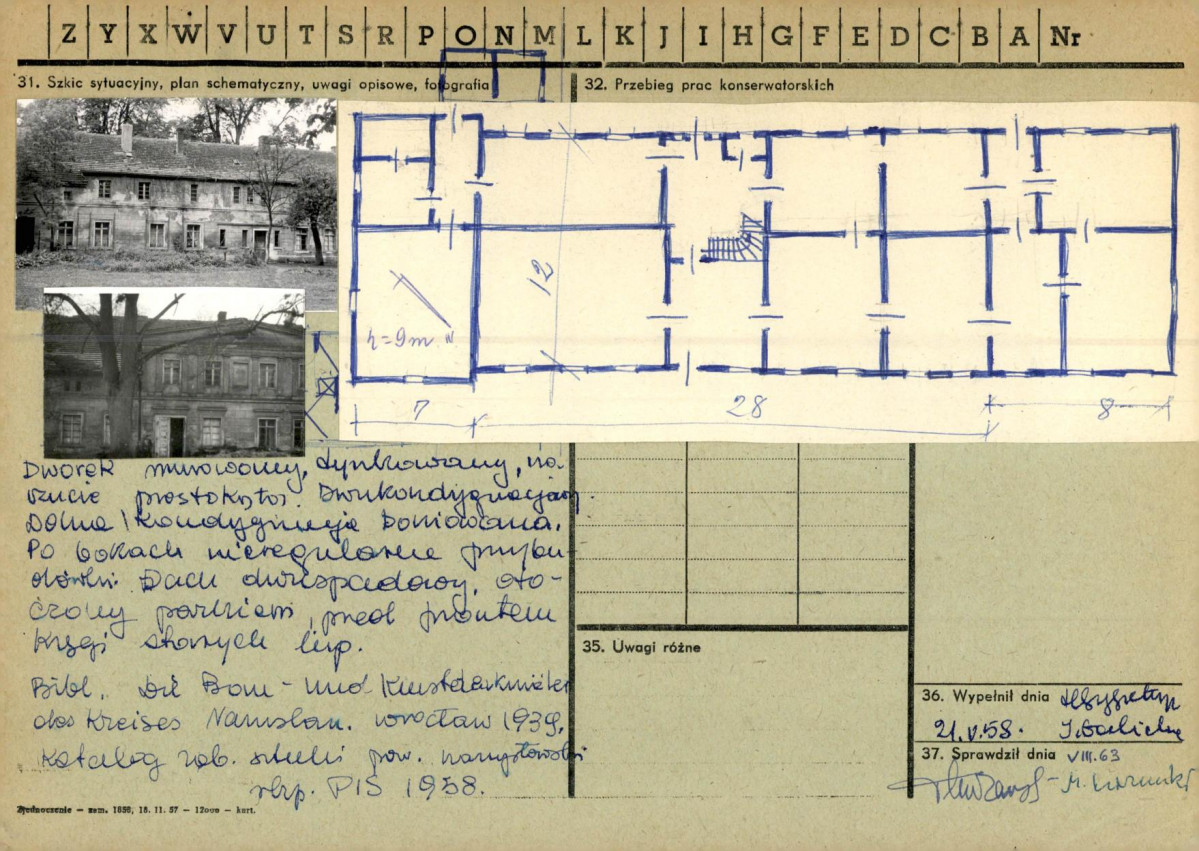 Z Y X W V U T S R P O N M L K J I H G F E D C B A Nr
31. Szkic sytuacyjny, plan schematyczny, uwagi opisowe, fotografia
32. Przebieg prac konserwatorskich
12
h = 9m
7
28
8
Dworek murowany, tynkowany, na
rzucie prostokąta. Dwukondygnacjowy
Dolna kondygnacja boniowana.
Po bokach nieregularne przybu-
dówki. Dach dwuspadowy, oto-
czony parkiem, przed frontem
kręgi starych lip.
Bibl. Die Bau- und Kunstdenkmäler
des Kreises Namslau. Wrocław 1939.
Katalog zab. sztuki pow. namysłowski
PIS 1958.
35. Uwagi różne
36. Wypełnił dnia
21.V.58.
37. Sprawdził dnia VIII.63
Zjednoczenie — zam. 1858, 18. 11. 57 — 12000 — kart.